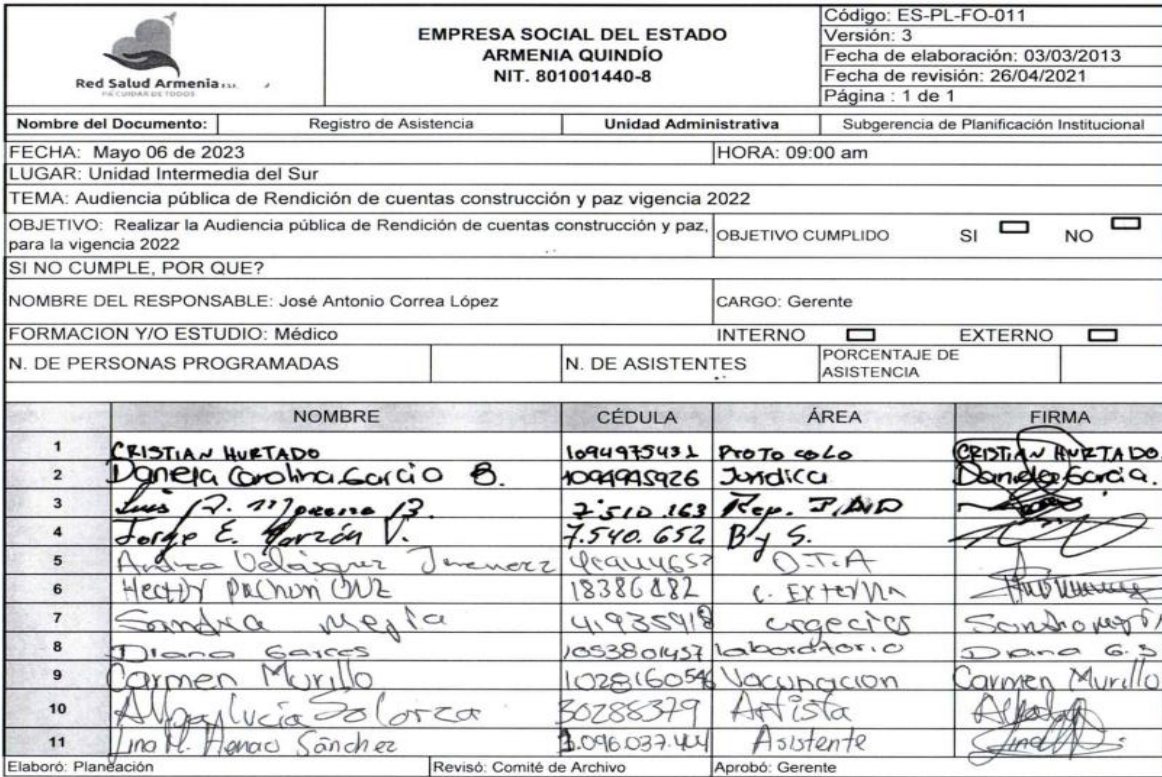 Red Salud Armenia E.S.E.
PA CUIDAR DE TODOS
EMPRESA SOCIAL DEL ESTADO
ARMENIA QUINDÍO
NIT. 801001440-8
Código: ES-PL-FO-011
Versión: 3
Fecha de elaboración: 03/03/2013
Fecha de revisión: 26/04/2021
Página : 1 de 1
Nombre del Documento: Registro de Asistencia Unidad Administrativa Subgerencia de Planificación Institucional
FECHA: Mayo 06 de 2023 HORA: 09:00 am
LUGAR: Unidad Intermedia del Sur
TEMA: Audiencia pública de Rendición de cuentas construcción y paz vigencia 2022
OBJETIVO: Realizar la Audiencia pública de Rendición de cuentas construcción y paz,
para la vigencia 2022
OBJETIVO CUMPLIDO SI NO
SI NO CUMPLE, POR QUE?
NOMBRE DEL RESPONSABLE: José Antonio Correa López CARGO: Gerente
FORMACION Y/O ESTUDIO: Médico INTERNO EXTERNO
N. DE PERSONAS PROGRAMADAS N. DE ASISTENTES PORCENTAJE DE
ASISTENCIA
NOMBRE CÉDULA ÁREA FIRMA
1 CRISTIAN HURTADO 1094975431 PROTOCOLO CRISTIAN HURTADO
2 Daniela Carolina Garcia B. Jurídica Daniela García.
3 Luis 7.510.163 Rep.
4 Jorge E. Garzón V. 7.540.652 B y S.
5 Andrea Velásquez
6 Hector C. Externa
7 Sandra Mejía
8 Diana Garces 1053801457 laboratorio Diana G. S
9 Carmen Murillo Vacunacion Carmen Murillo
10 Alba Lucía 30288379 Artista
11 Lina M. Henao Sánchez Asistente
Elaboró: Planeación Revisó: Comité de Archivo Aprobó: Gerente